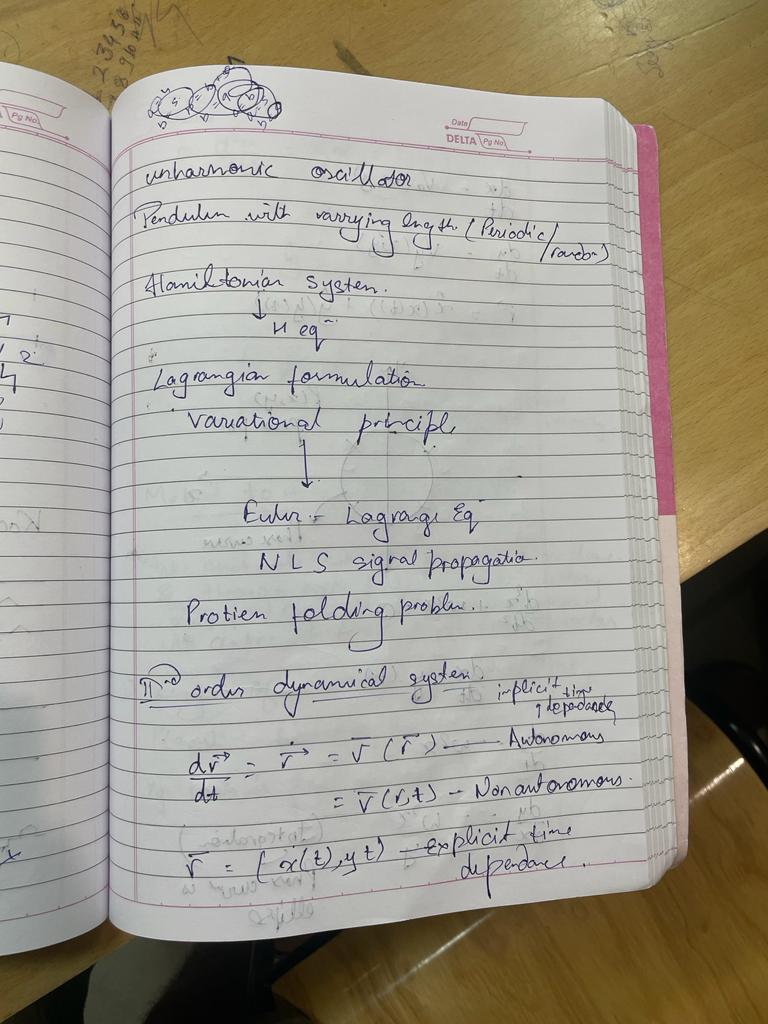 Pg No.
Date
DELTA Pg No.
unharmonic oscillator
Pendulum with varrying length (Periodic/
/random)
Hamiltonian system.
↓
H eqⁿ
Lagrangian formulation
Variational principle
↓
Euler - Lagrange Eqⁿ
NLS signal propagation.
Protien folding problem.
IInd order dynamical system.
implicit time
↑ dependance
dr⃗/dt = ṙ⃗ = v̄ (r̄) — Autonomous
= v̄ (r,t) – Nonautonomous.
r̄ = (x(t), y t) – explicit time
dependance.